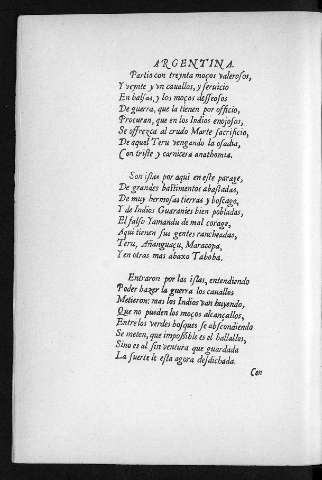 ARGENTINA.
Partio con treynta moços valerosos,
Y veynte y vn cauallos, y seruicio
En balsas, y los moços desseosos
De guerra, que la tienen por officio,
Procuran, que en los Indios enojosos,
Se offrezca al crudo Marte sacrificio,
De aquel Teru vengando la osadia,
Con triste y carnicera anathomia.

Son islas por aqui en este parage,
De grandes bastimentos abastadas,
De muy hermosas tierras y boscage,
Y de Indios Guaranies bien pobladas,
El falso Yamandu de mal corage,
Aqui tienen sus gentes rancheadas,
Teru, Añanguaçu, Maracopa,
Y en otras mas abaxo Taboba.

Entraron por las islas, entendiendo
Poder hazer la guerra los cauallos
Metieron: mas los Indios van huyendo,
Que no pueden los moços alcançallos,
Entre los verdes bosques se abscondiendo
Se meten, que impossible es el hallallos,
Sino es al fin ventura que guardada
La suerte le esta agora desdichada.
Con